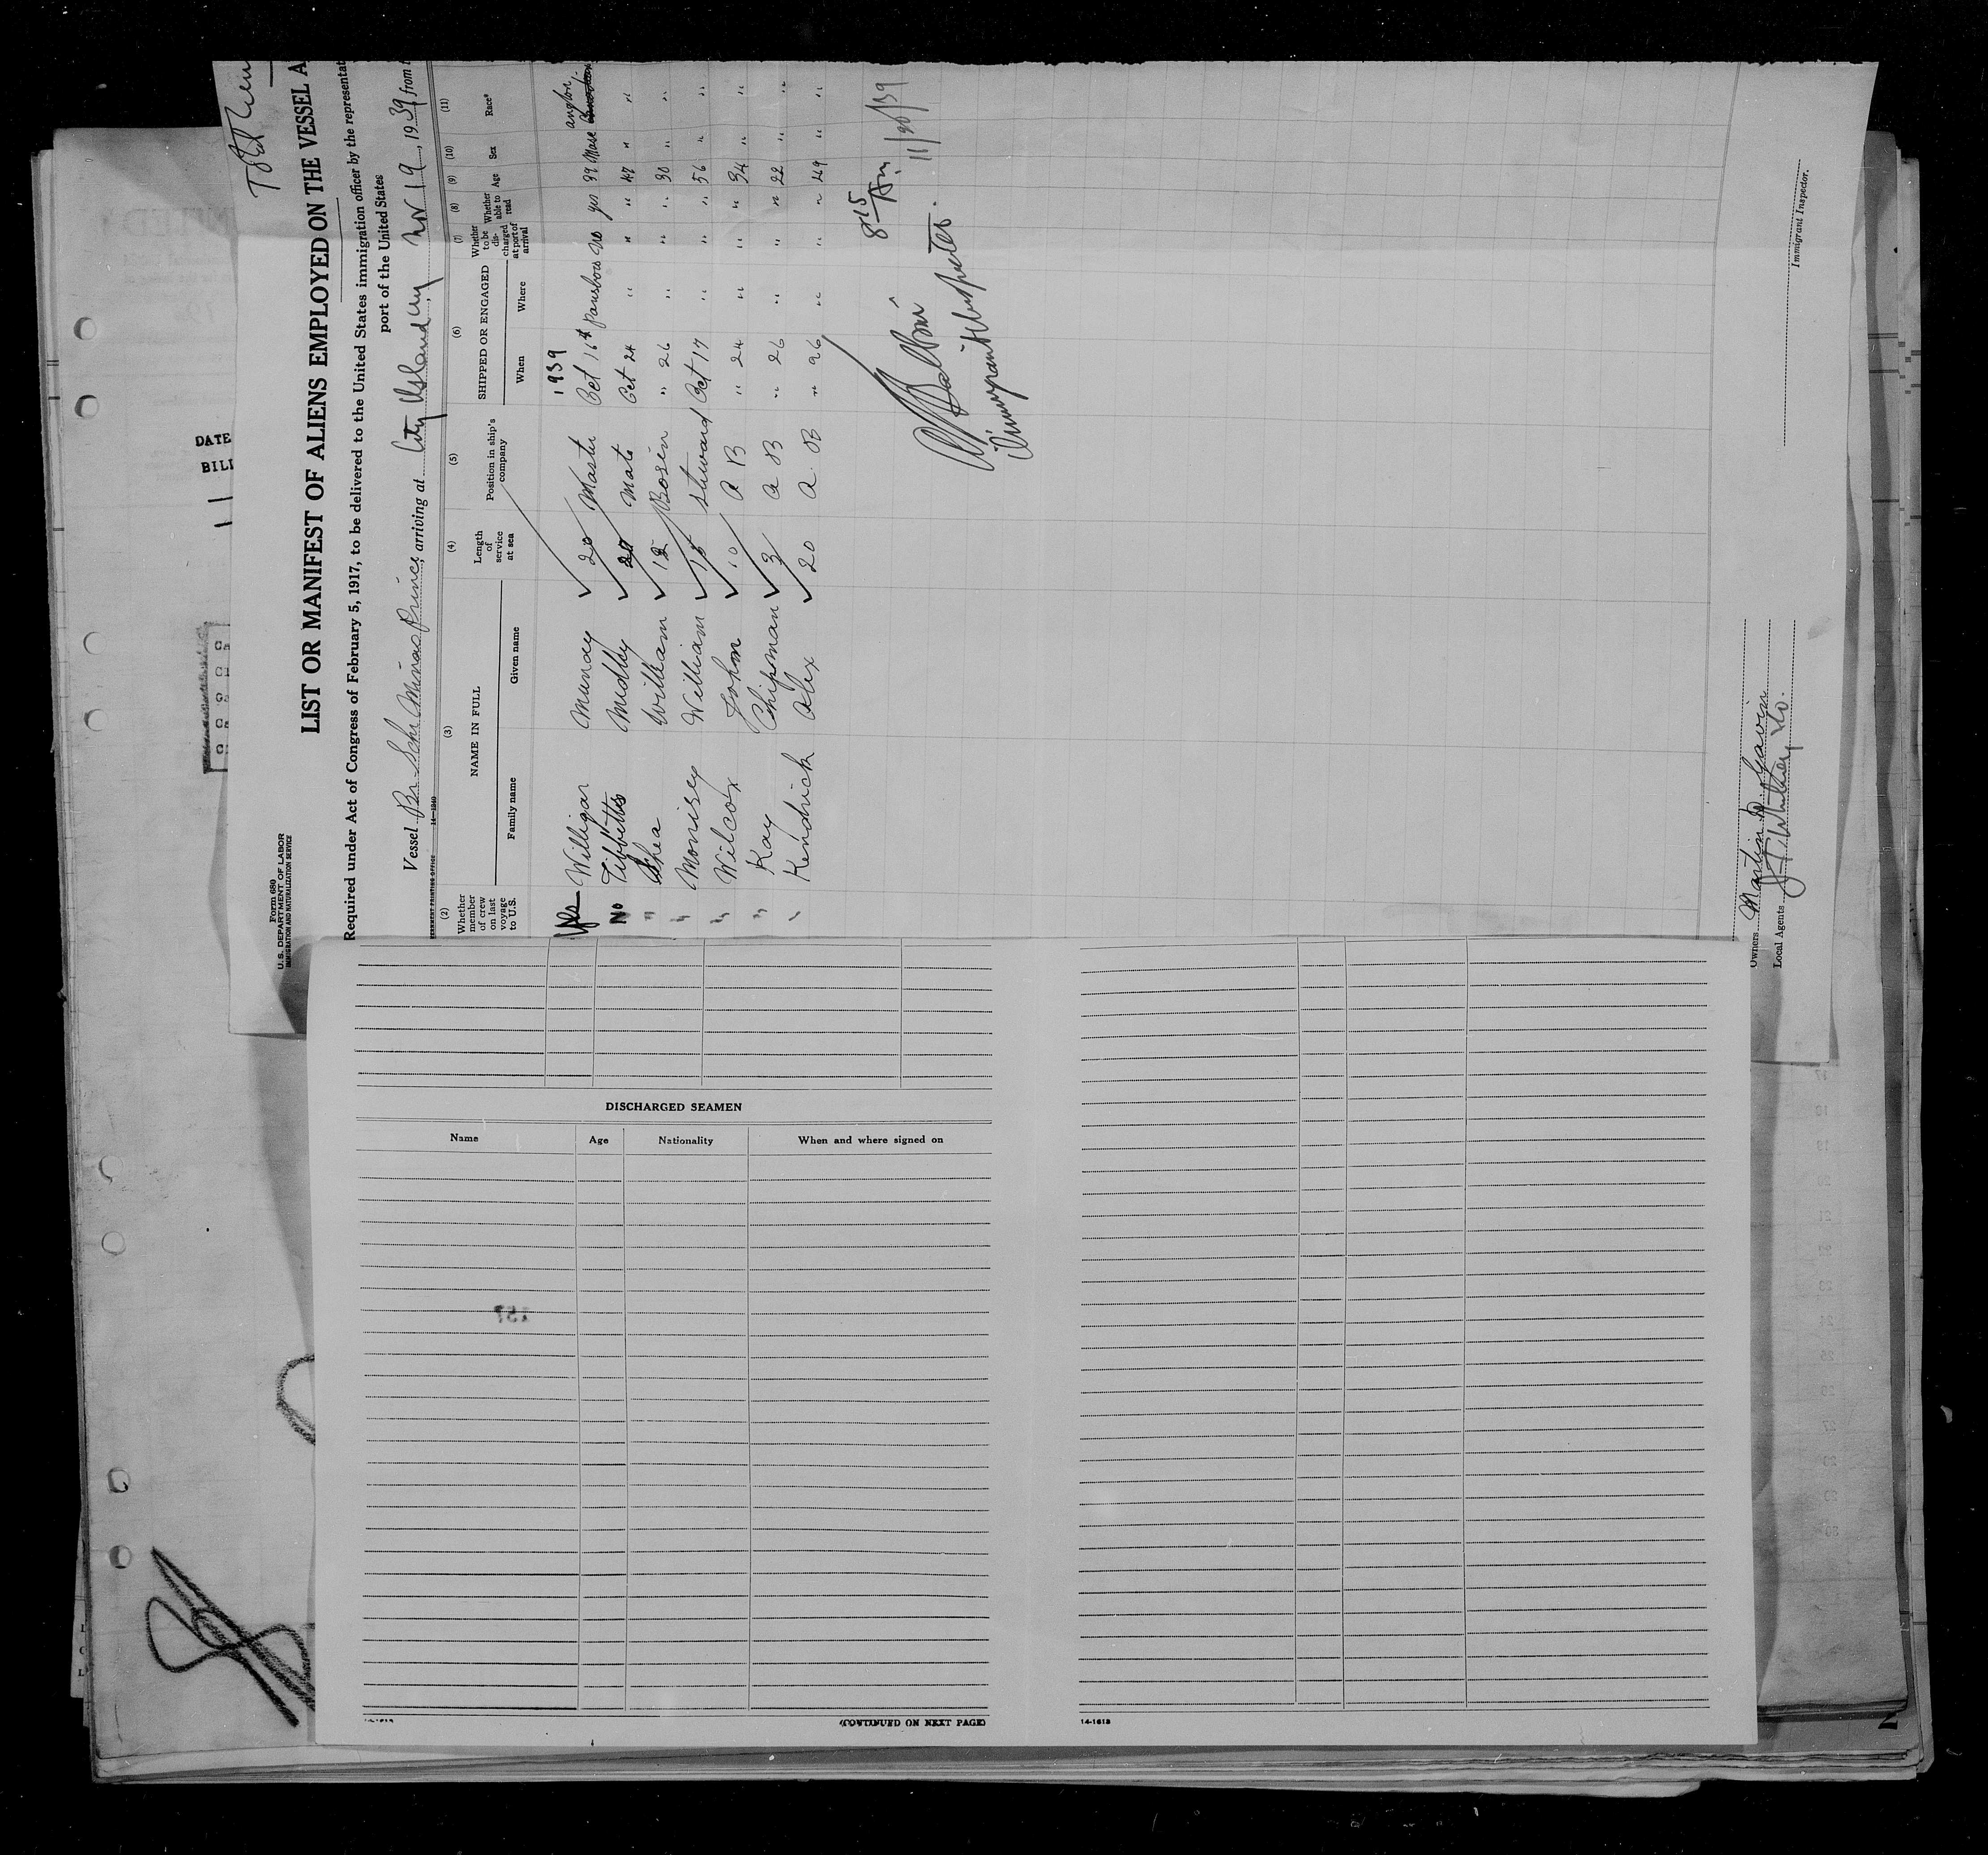 Form 680
U.S. DEPARTMENT OF LABOR
IMMIGRATION AND NATURALIZATION SERVICE
LIST OR MANIFEST OF ALIENS EMPLOYED ON THE VESSEL A
Required under Act of Congress of February 5, 1917, to be delivered to the United States immigration officer by the representat
port of the United States
Vessel Br Sch Minas Prince, arriving at City Island NY Nov 19, 1939 from
(2) (3) (4) (5) (6) (7) (8) (9) (10) (11)
Whether member of crew on last voyage to U.S.
NAME IN FULL
Family name Given name
Length of service at sea
Position in ship's company
SHIPPED OR ENGAGED
When Where
Whether to be discharged at port of arrival
Whether able to read
Age
Sex
Race*
1939
Yes Williger Murray 20 Master Oct 16 Parrsboro No yes 39 Male
No Tibbetts Medley 20 Mate Oct 24 " " " 47 " "
" Shea William 12 Bosin " 26 " " " 30 " "
" Morrisey William 15 Steward Oct 17 " " " 56 " "
" Wilcox John 10 A B " 24 " " " 34 " "
" Kay Chipman 3 A B " 26 " " " 22 " "
" Kendrick Alex 20 A. B " 26 " " " 49 " "
8 15 Am
11/20/39
Immigrant Inspector.
Owners Martin
Local Agents
Immigrant Inspector.
DATE
BILL
DISCHARGED SEAMEN
Name Age Nationality When and where signed on
157
(CONTINUED ON NEXT PAGE)
14-1613